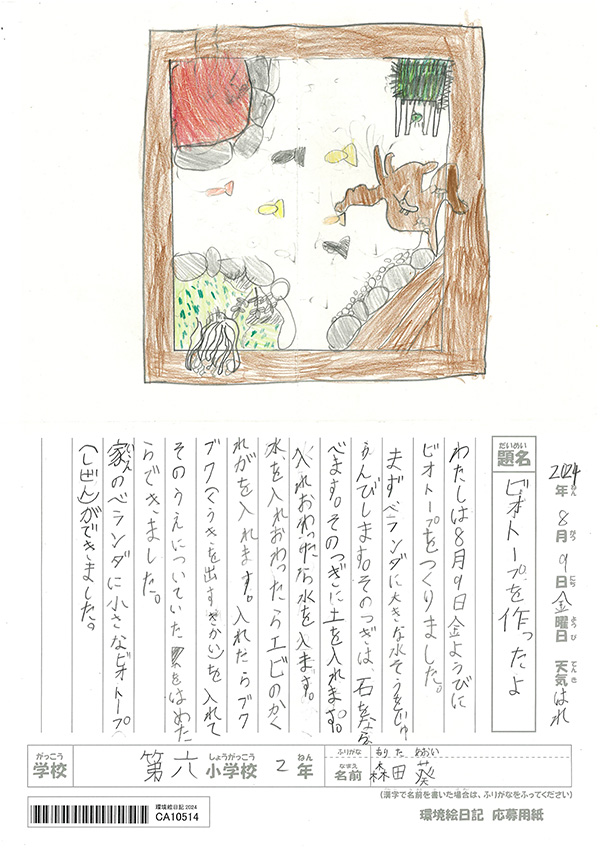 2024年ねん8月がつ9日にち金曜日ようび 天気てんきはれ
だいめい
題名 ビオトープを作ったよ
わたしは8月9日金ようびに
ビオトープをつくりました。
まずベランダに大きな水そうをじゅ
んびします。そのつぎは、石をなら
べます。そのつぎに土を入れます。
入れおわったら水を入ます。
水を入れおわったらエビのかく
れがを入れます。入れたらブク
ブク(くうきを出すきかい)を入れて
そのうえについていたをはめた
らできました。
家のベランダに小さなビオトープ
(しぜん)ができました。
がっこう しょうがっこう ねん
学校 第六小学校 2年
ふりがな もりた あおい
なまえ
名前 森田葵
(漢字で名前を書いた場合は、ふりがなをふってください)
環境絵日記 2024
CA10514
環境絵日記 応募用紙